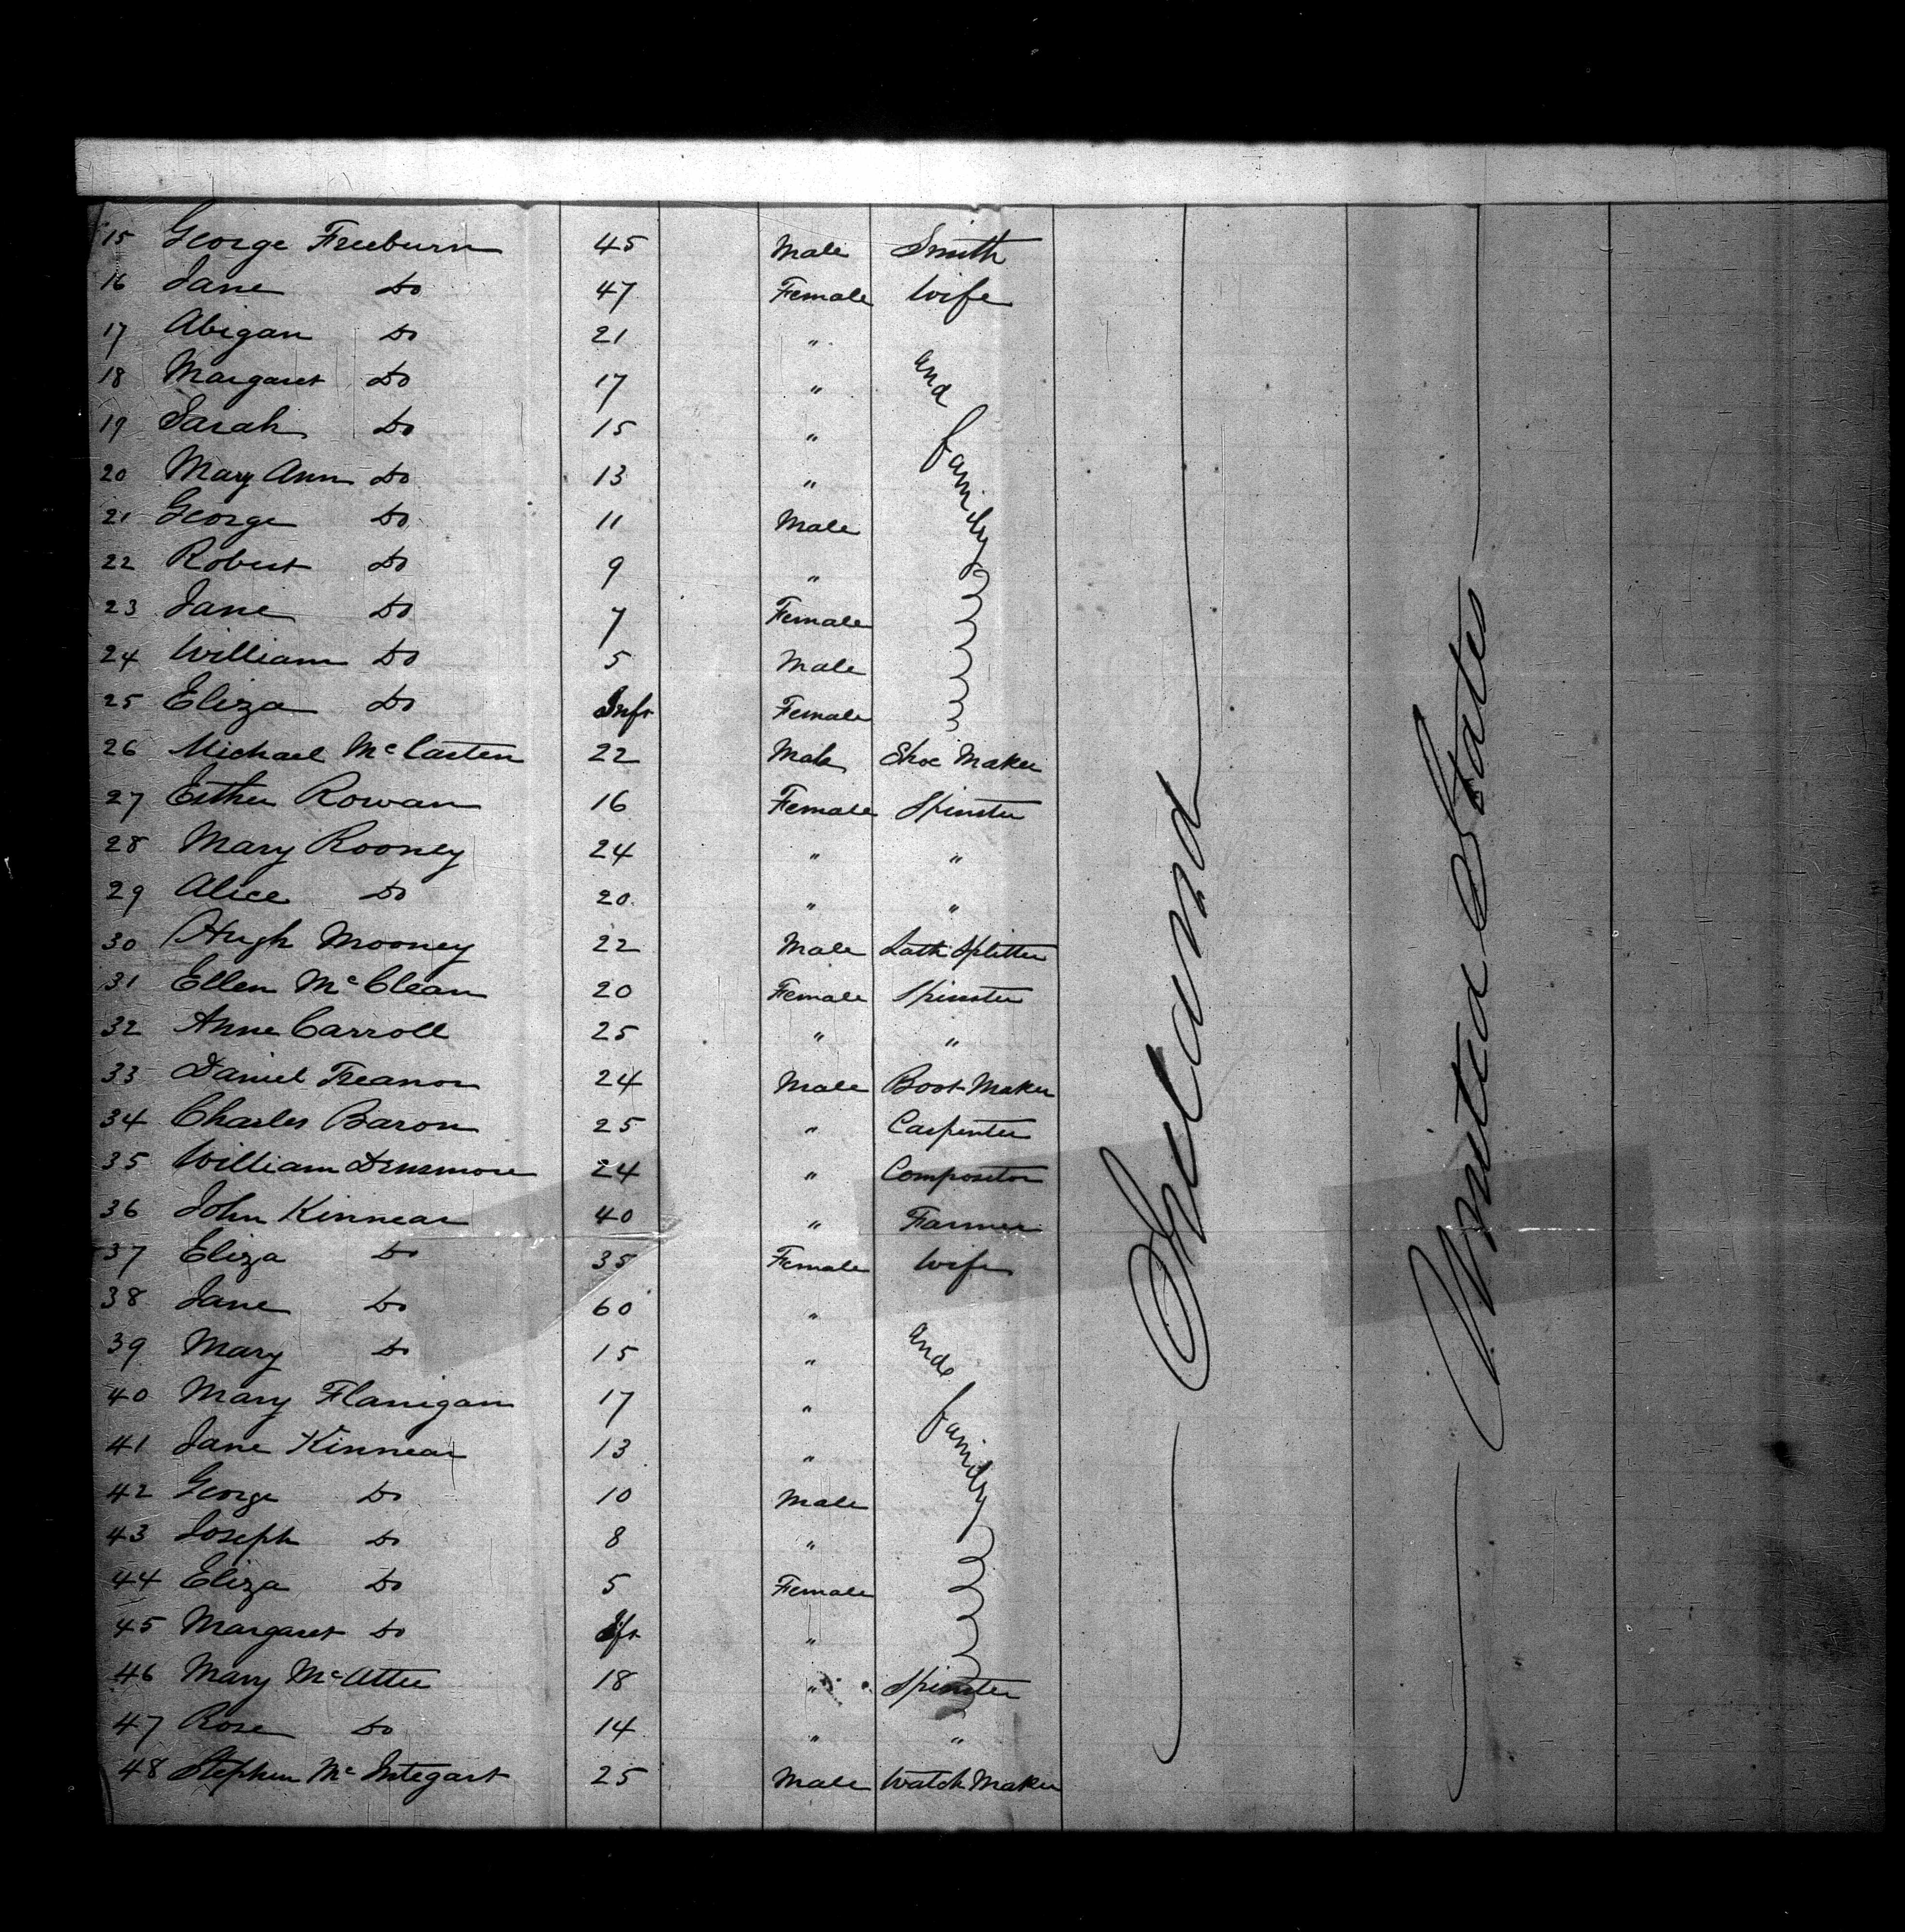 15 George Freeburn 45 Male Smith
16 Jane Do 47 Female Wife
17 Abigan Do 21 "
18 Margaret Do 17 " and
19 Sarah Do 15 " family
20 Mary Ann Do 13 "
21 George Do 11 Male
22 Robert Do 9 "
23 Jane Do 7 Female
24 William Do 5 Male
25 Eliza Do Inft Female
26 Michael McCarten 22 Male Shoe Maker
27 Esther Rowan 16 Female Spinster
28 Mary Rooney 24 " "
29 Alice Do 20 " "
30 Hugh Mooney 22 Male Lath Splitter
31 Ellen McClean 20 Female Spinster
32 Anne Carroll 25 " "
33 Daniel Treanor 24 Male Boot Maker
34 Charles Baron 25 " Carpenter
35 William Dinsmore 24 " Compositor
36 John Kinnear 40 " Farmer
37 Eliza Do 35 Female Wife
38 Jane Do 60 "
39 Mary Do 15 " and
40 Mary Flanigan 17 " family
41 Jane Kinnear 13 "
42 George Do 10 Male
43 Joseph Do 8 "
44 Eliza Do 5 Female
45 Margaret Do Ift "
46 Mary McAtee 18 " Spinster
47 Rose Do 14 " "
48 Stephen McIntegart 25 Male Watch Maker
Ireland
United States